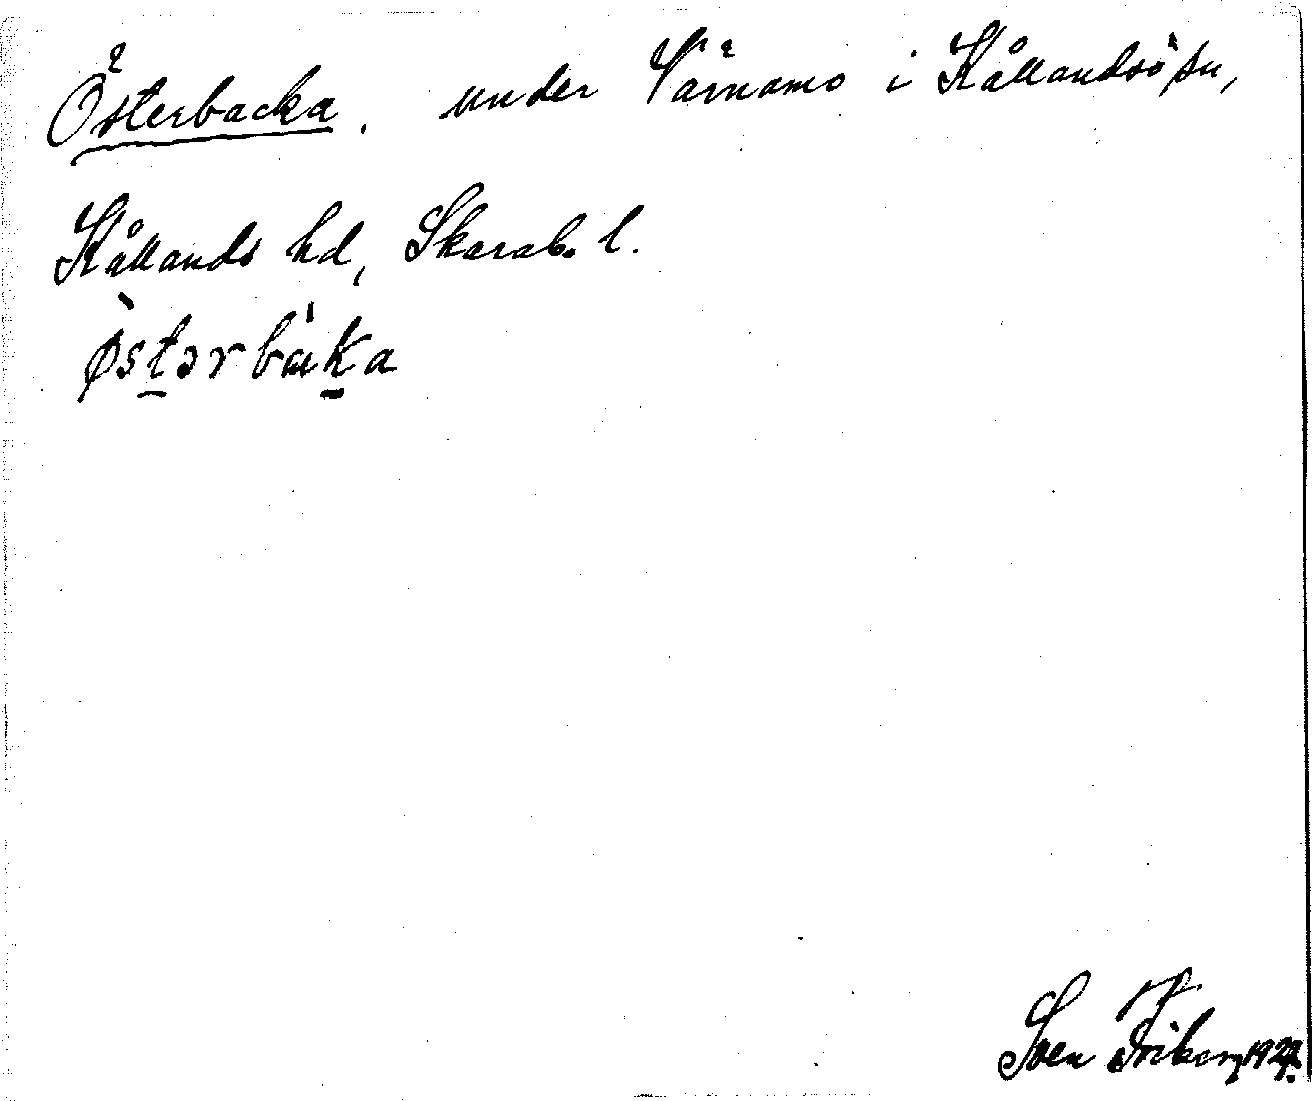 Österbacka. under Värnamo i Kållandsö sn,
Kållands hd, Skarab. l.
östərbaka
Sven Friberg 1927.